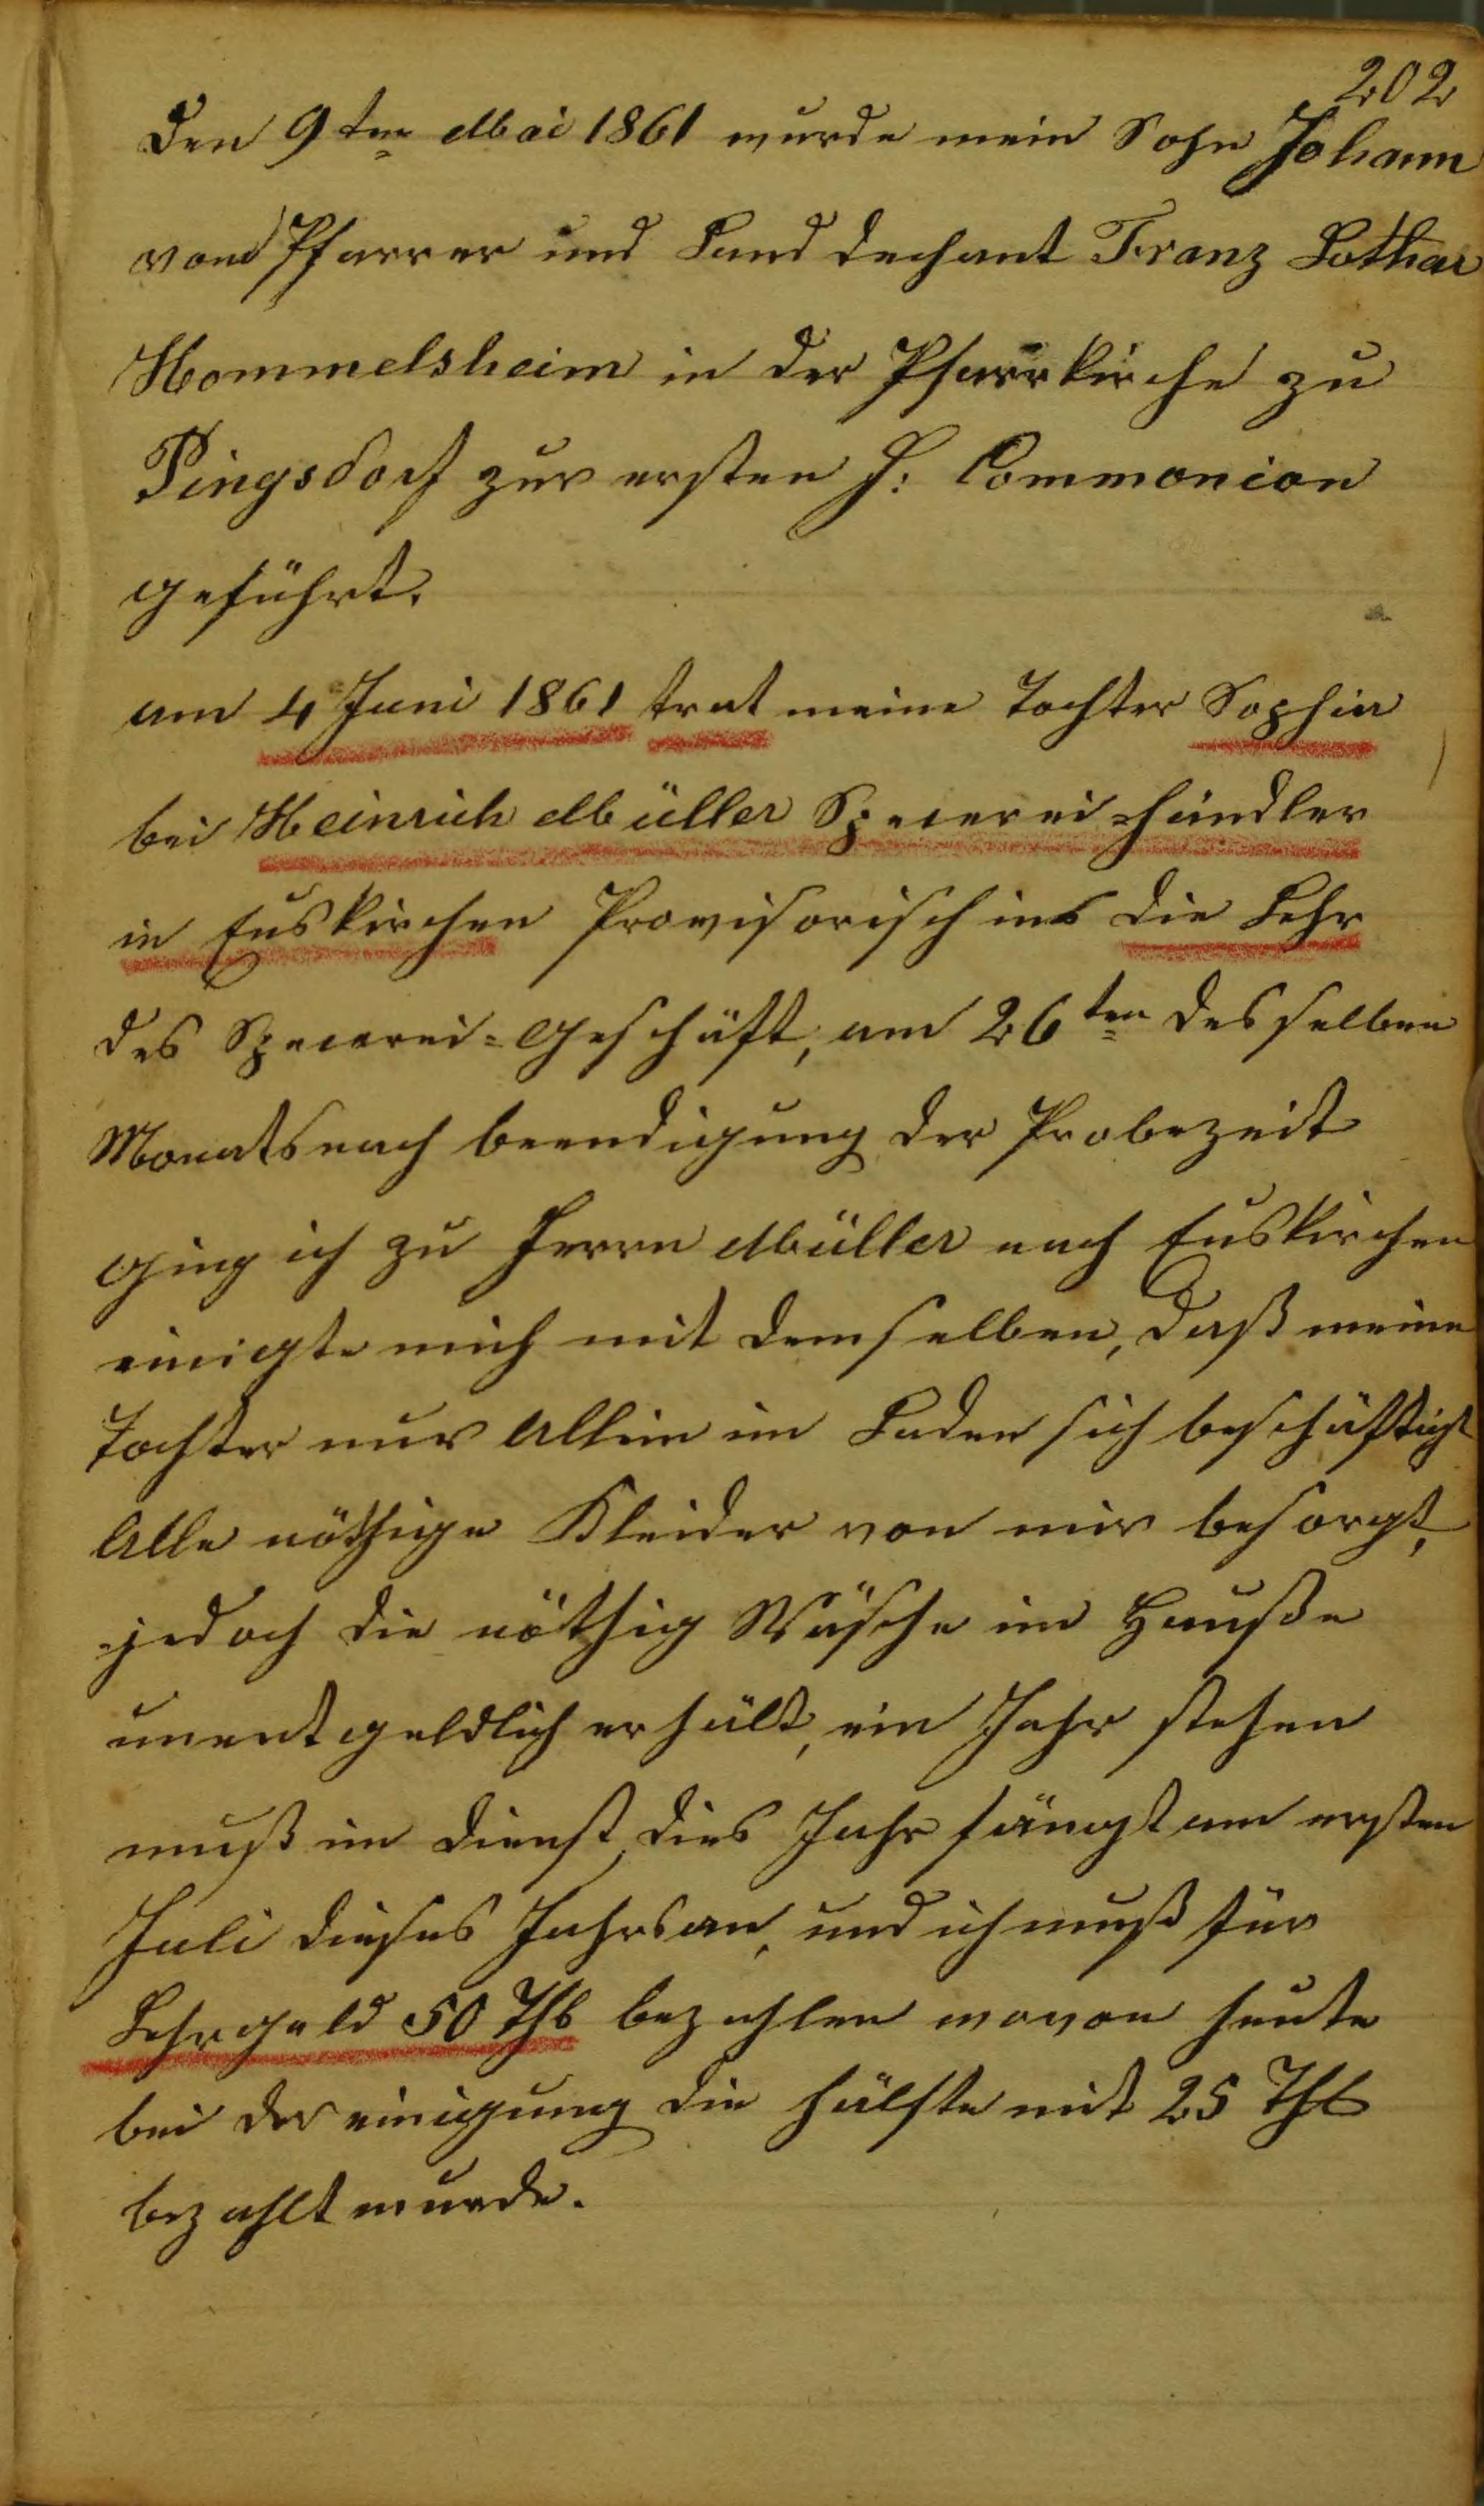 202
Den 9ten Mai 1861 wurde mein Sohn Johann
vom Pfarrer und Land dechant Franz Lothar
Hommelsheim in der Pfarrkirche zu
Pingsdorf zur ersten H: Commonion
geführt.
am 4 Juni 1861 trat meine Tochter Sophia
bei Heinrich Müller Specerei-händler
in Euskirchen Provisorisch ins die Lehr
des Specerei-Geschäft, am 26ten desselben
Monats nach beendigung der Probezeit
ging ich zu Herrn Müller nach Euskirchen
einigte mich mit demselben, daß meine
Tochter nur Allein im Laden sich beschäftigt
Alle nöthige Kleider von mir besorgt,
jedoch die nöthig Wäsche im Hauße
unentgeldlich erhält, ein Jahr stehen
muß im Dienst, dies Jahr fängt am ersten
Juli dieses Jahrs an, und ich muß für
Lehrgeld 50 Thl bezahlen wovon heute
bei der einigung die hälfte mit 25 Thl
bezahlt wurde.